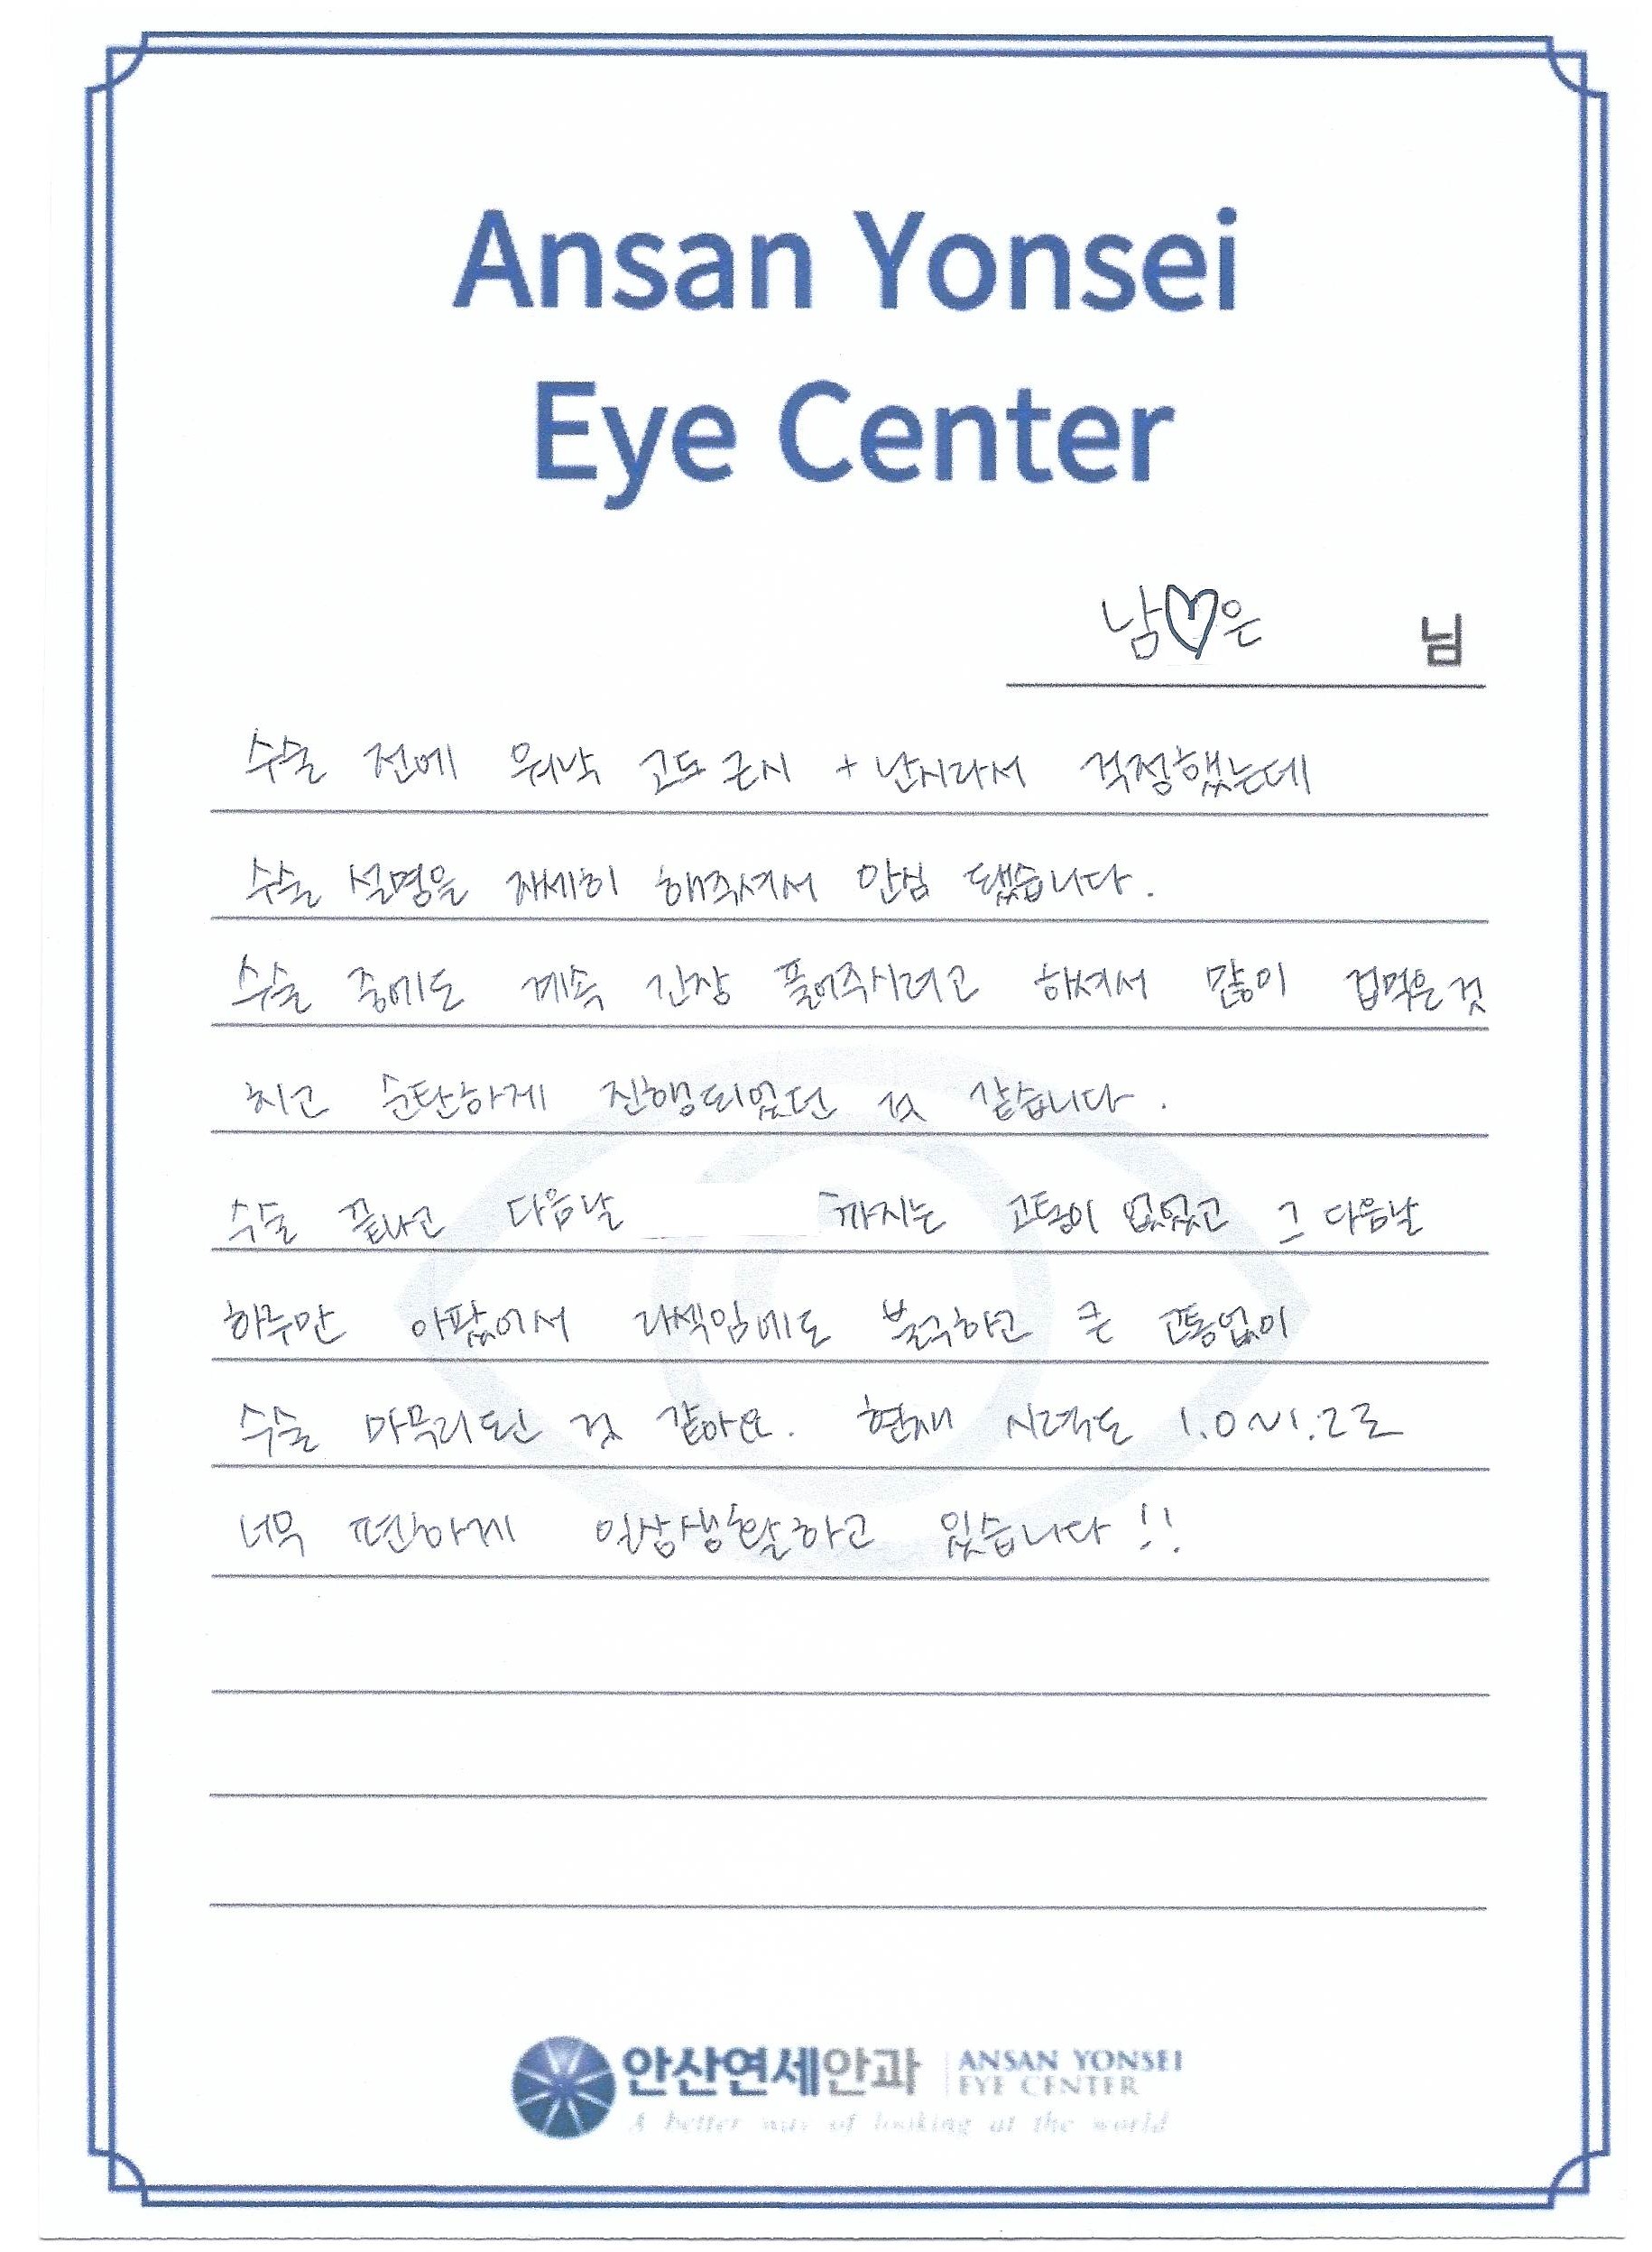 Ansan Yonsei
Eye Center
남♡은 님
수술 전에 워낙 고도 근시 + 난시라서 걱정했는데
수술 설명을 자세히 해주셔서 안심 됐습니다.
수술 중에도 계속 긴장 풀어주시려고 하셔서 많이 겁먹은것
치고 순탄하게 진행되었던 것 같습니다.
수술 끝나고 다음날 까지는 고통이 없었고 그 다음날
하루만 아팠어서 라섹임에도 불구하고 큰 고통없이
수술 마무리된 것 같아요. 현재 시력도 1.0~1.2로
너무 편하게 일상생활하고 있습니다!!
안산연세안과 ANSAN YONSEI
EYE CENTER
A better way of looking at the world